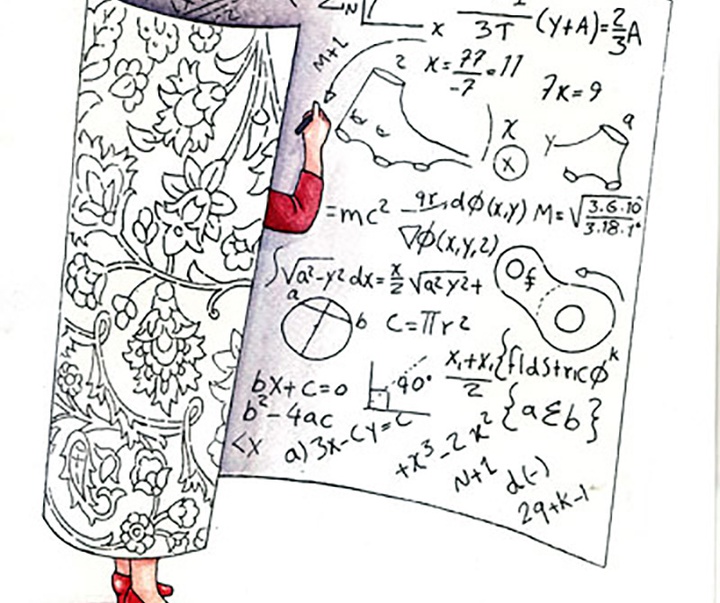 ΣN
x
3T (y+A)=2/3A
M+1
2 x=77/-7=11
7x=9
x
(x)
y a
=mc² qr,dϕ(x,y) M=√3.6.10/3.18.1
∇ϕ(x,y,2)
∫√a²-y² dx=x/2 √a²y²+
f
a b C=πr2
x,+x,/2 {fldstricϕᵏ
bx+c=0 90°
b²-4ac {aƐb}
<x a) 3x-cy=c +x³-2x²
N+1 d(-)
29+k-1